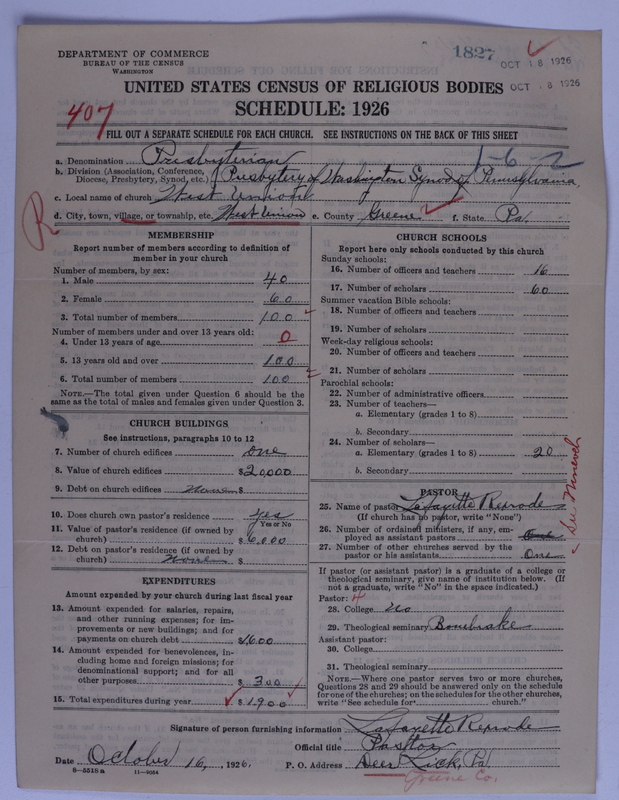 DEPARTMENT OF COMMERCE
BUREAU OF THE CENSUS
WASHINGTON
1827
OCT 18 1926
OCT 18 1926
UNITED STATES CENSUS OF RELIGIOUS BODIES
SCHEDULE: 1926
407
FILL OUT A SEPARATE SCHEDULE FOR EACH CHURCH. SEE INSTRUCTIONS ON THE BACK OF THIS SHEET
1-6-2
a. Denomination Presbyterian
b. Division (Association, Conference, Diocese, Presbytery, Synod, etc.) Presbytery of Washington Synod of Pennsylvania
c. Local name of church West Union
d. City, town, village, or township, etc. West Union e. County Greene f. State Pa.
R
MEMBERSHIP
Report number of members according to definition of
member in your church
Number of members, by sex:
1. Male 40
2. Female 60
3. Total number of members 100
Number of members under and over 13 years old:
4. Under 13 years of age 0
5. 13 years old and over 100
6. Total number of members 100
NOTE.—The total given under Question 6 should be
same as the total of males and females given under Question 3.
CHURCH BUILDINGS
See instructions, paragraphs 10 to 12
7. Number of church edifices one
8. Value of church edifices $20,000
9. Debt on church edifices None $
10. Does church own pastor's residence yes
Yes or No
11. Value of pastor's residence (if owned by
church) $6,000
12. Debt on pastor's residence (if owned by
church) None $
EXPENDITURES
Amount expended by your church during last fiscal year
13. Amount expended for salaries, repairs,
and other running expenses; for im-
provements or new buildings; and for
payments on church debt $1600
14. Amount expended for benevolences, in-
cluding home and foreign missions; for
denominational support; and for all
other purposes $300
15. Total expenditures during year $1900
CHURCH SCHOOLS
Report here only schools conducted by this church
Sunday schools:
16. Number of officers and teachers 16
17. Number of scholars 60
Summer vacation Bible schools:
18. Number of officers and teachers
19. Number of scholars
Week-day religious schools:
20. Number of officers and teachers
21. Number of scholars
Parochial schools:
22. Number of administrative officers
23. Number of teachers—
a. Elementary (grades 1 to 8)
b. Secondary
24. Number of scholars—
a. Elementary (grades 1 to 8) 20
b. Secondary
PASTOR
25. Name of pastor Lafayette Rexrode
(If church has no pastor, write "None")
26. Number of ordained ministers, if any, em-
ployed as assistant pastors
27. Number of other churches served by the
pastor or his assistants One
See Nineveh
If pastor (or assistant pastor) is a graduate of a college or
theological seminary, give name of institution below. (If
not a graduate, write "No" in the space indicated.)
Pastor: 4
28. College No
29. Theological seminary Bonebrake
Assistant pastor:
30. College
31. Theological seminary
NOTE.—Where one pastor serves two or more churches,
Questions 28 and 29 should be answered only on the schedule
for one of the churches; on the schedules for the other churches,
write "See schedule for church."
Signature of person furnishing information Lafayette Rexrode
Official title Pastor
Date October 16, 1926. P. O. Address Deer Lick, Pa
Greene Co.
8—5518 a 11—9554